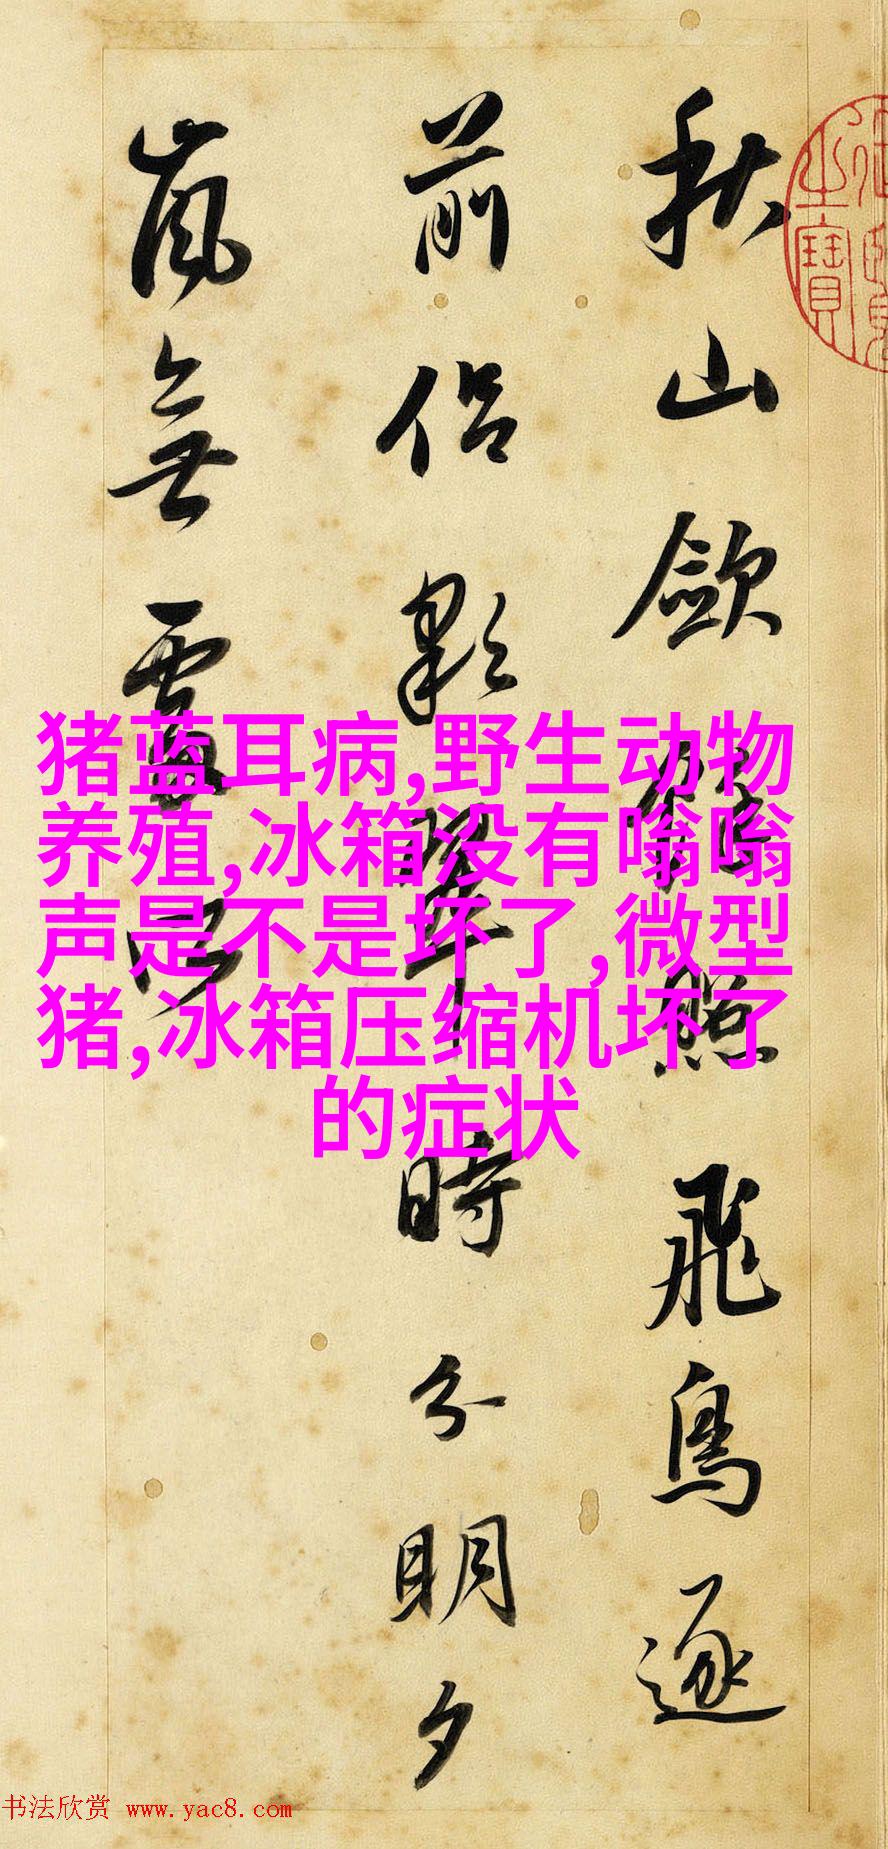 秋山歛餘照飛鳥逐
前侣彩翠時分明夕
嵐無處所
之寶
猪蓝耳病,野生动物
养殖,冰箱没有嗡嗡
声是不是坏了,微型
猪,冰箱压缩机坏了
的症状
书法欣赏 www.yac8.com